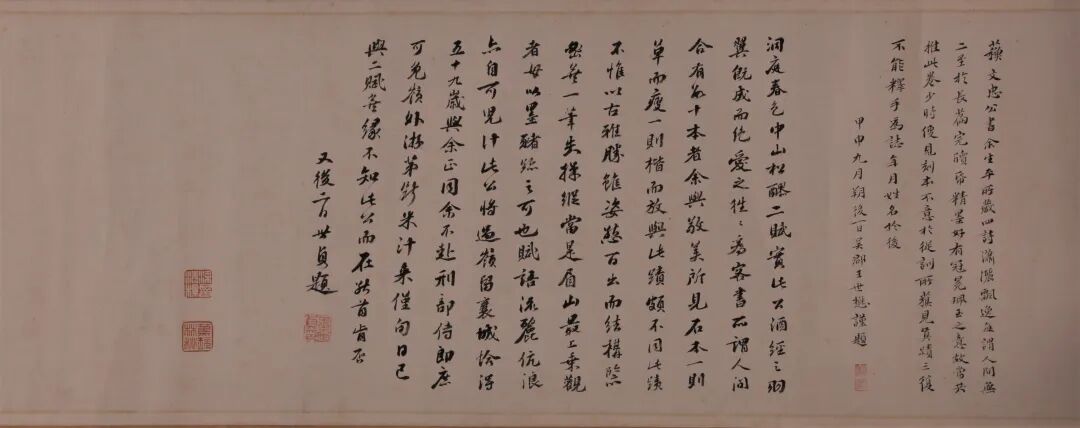 蘇文忠公書余生平所藏四詩瀟灑飄逸每謂人間無
二至於長篇完牘而精墨好有冠冕珮玉之意故當共
推此卷少時僅見刻本不意於從訓所獲見真蹟三復
不能釋手為誌年月姓名於後
甲申九月朔後一日吳郡王世懋謹題
洞庭春色中山松醪二賦實此公酒經之羽
翼既成而絕愛之往往為客書所謂人間
合有數十本者余與敬美所見石本一則
草而瘦一則楷而放與此蹟頗不同此蹟
不惟以古雅勝雖姿態百出而結構謹
密無一筆失操縱當是眉山最上乘觀
者毋以墨豬跡之可也賦語流麗伉浪
亦自可兒計此公將過嶺留襄城恰得
五十九歲與余正同余不赴刑部侍郎庶
可免嶺外游第斷米汁來僅旬日已
與二賦無緣不知此公而在能首肯否
又後一日世貞題